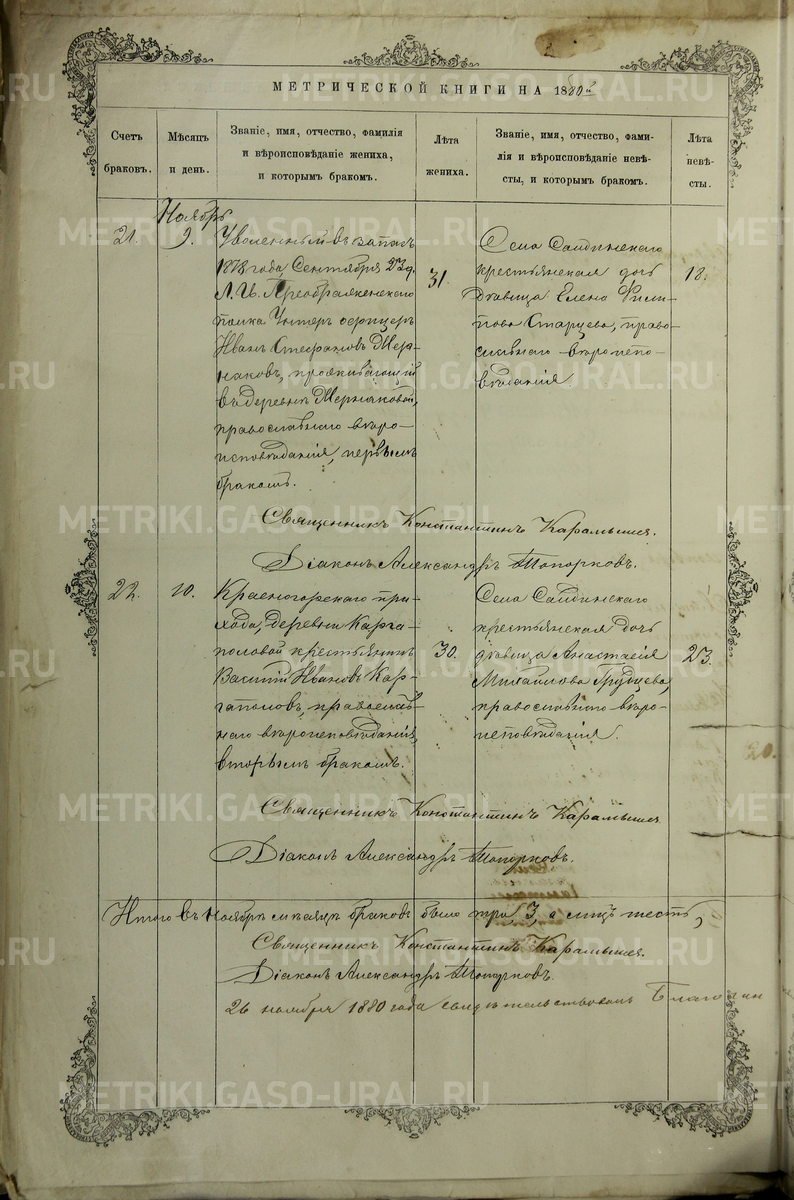 МЕТРИЧЕСКОЙ КНИГИ НА 1880й
Счетъ браковъ.
Мѣсяцъ и день.
Званіе, имя, отчество, фамилія
и вѣроисповѣданіе жениха,
и которымъ бракомъ.
Лѣта жениха.
Званіе, имя, отчество, фами-
лія и вѣроисповѣданіе невѣ-
сты, и которымъ бракомъ.
Лѣта невѣ-
сты.
Ноябрь
21.
9.
Уволенный въ запасъ
1878 года, Сентября 23 д.
Л. Гв. Преображенскаго
полка Унтеръ офицеръ
Иванъ Стефановъ Мер-
наковъ, проживающій
въ деревнѣ Мерныаковой,
православнаго вѣро-
исповѣданія, первымъ
бракомъ.
31.
Села Салдинскаго
крестьянская дочь
дѣвица Елена Фили-
пова Старцева, право-
славнаго вѣроиспо-
вѣданія
18.
Священникъ Константинъ Карамышев.
Діаконъ Александръ Топорковъ.
22.
10.
Красногорскаго при-
хода, деревни Карга-
половой крестьянинъ
Василій Ивановъ Кар-
гаполовъ, православ-
наго вѣроисповѣданія,
вторымъ бракомъ.
30.
Села Салдинскаго
крестьянская дочь
дѣвица Анастасія
Михаилова Грудцева,
православнаго вѣро-
исповѣданія.
23.
Священникъ Константинъ Карамышев
Діаконъ Александръ Топорковъ.
Итого въ Ноябрѣ мѣсяцѣ браковъ было три 3, а лицъ шесть
Священникъ Константинъ Карамышев.
Діаконъ Александръ Топорковъ.
26 ноября 1880 года свидѣтельствовалъ Благочин
20.
METRIKI.GASO-URAL.RU